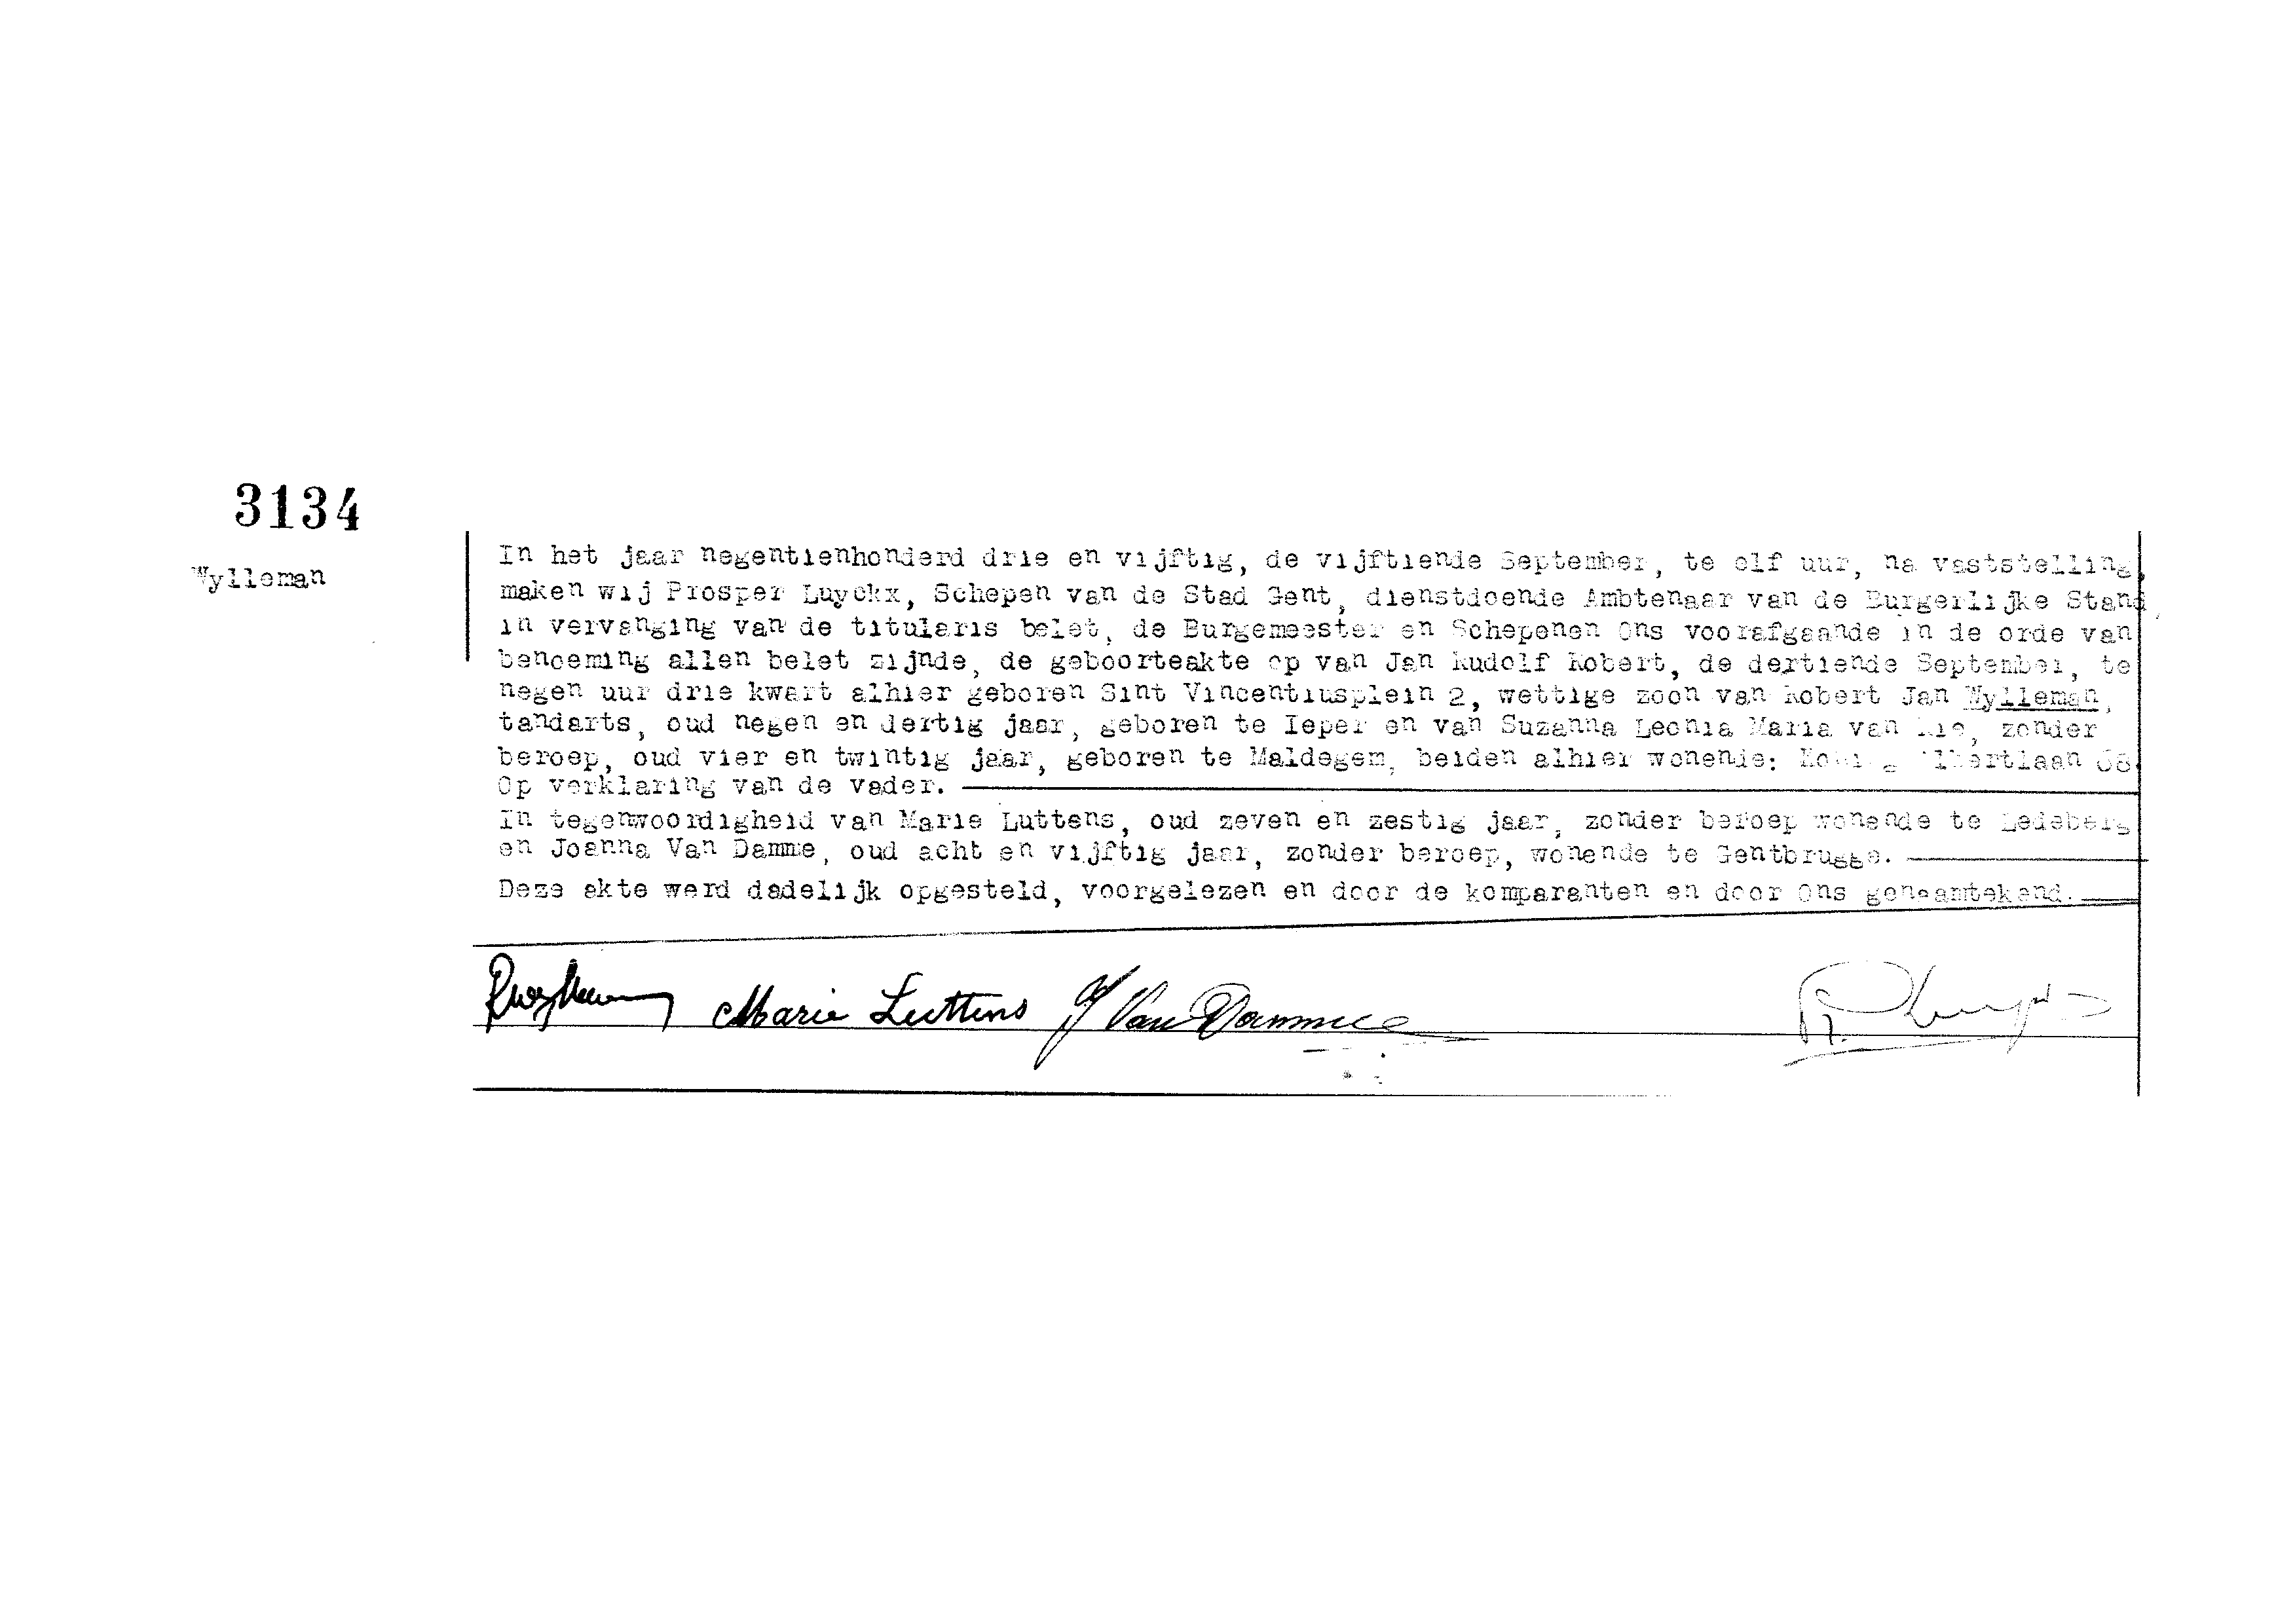 3134
Wylleman
In het jaar negentienhonderd drie en vijftig, de vijftiende September, te elf uur, na vaststelling,
maken wij Prosper Luyckx, Schepen van de Stad Gent, dienstdoende Ambtenaar van de Burgerlijke Stand,
in vervanging van de titularis belet, de Burgemeester en Schepenen Ons voorafgaande in de orde van
benoeming allen belet zijnde, de geboorteakte op van Jan Rudolf Robert, de dertiende September, te
negen uur drie kwart alhier geboren Sint Vincentiusplein 2, wettige zoon van Robert Jan Wylleman,
tandarts, oud negen en dertig jaar, geboren te Ieper en van Suzanna Leonia Maria van zonder
beroep, oud vier en twintig jaar, geboren te Maldegem, beiden alhier wonende: Koning Albertlaan
Op verklaring van de vader.
In tegenwoordigheid van Marie Luttens, oud zeven en zestig jaar, zonder beroep wonende te Ledeberg
en Joanna Van Damme, oud acht en vijftig jaar, zonder beroep, wonende te Gentbrugge.
Deze akte werd dadelijk opgesteld, voorgelezen en door de komparanten en door Ons genaamtekend.
Marie Luttens J Van Damme